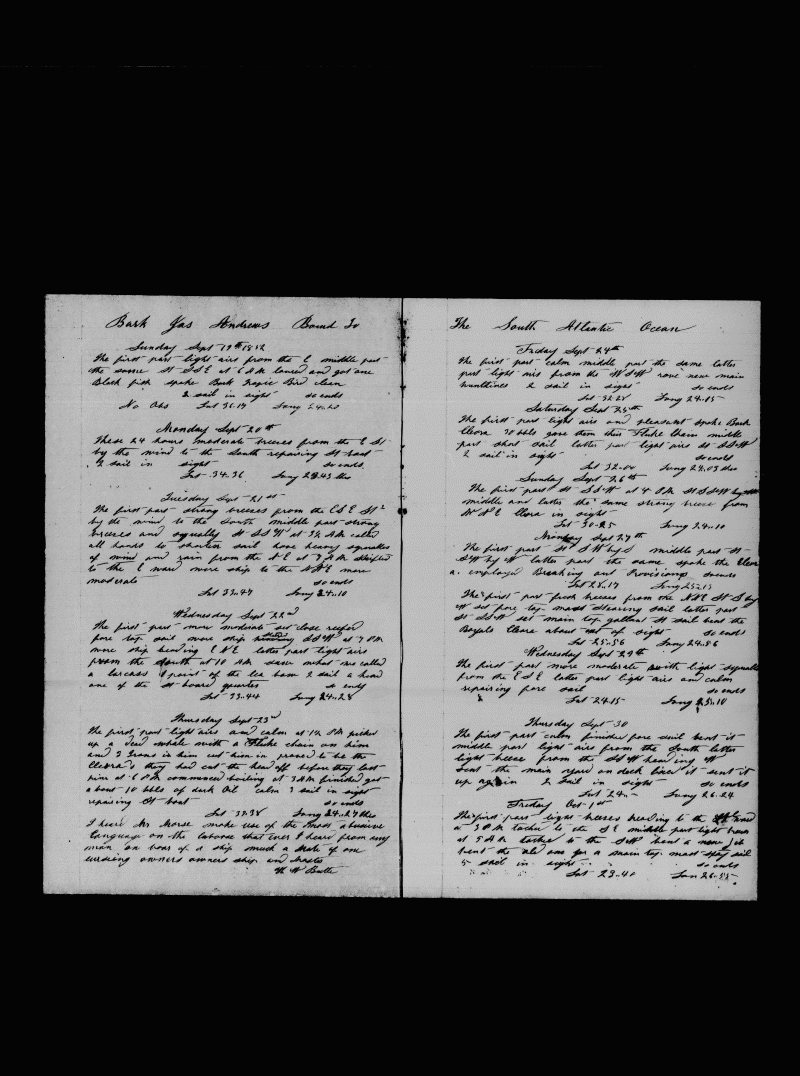 Bark Jas Andrews Bound To
Sunday Sept 19th 1852
The first part light airs from the E middle part
the same St SSE at 6 AM lowerd and got one
Black fish spoke Bark Tropic Bird clean
2 sail in sight so ends
No Obs Lat 36.14 Long
Monday Sept 20th
These 24 hours moderate breeses from the E St
by the wind to the South repairing St boat
2 sail in sight so ends
Lat 34.36 Long 24.43
Tuesday Sept 21st
The first part strong breeses from the ESE St
by the wind to the South middle part strong
breeses and squally St SSW at 3½ AM called
all hands to shorten sail have heavy squalls
of wind and rain from the NE at 7 AM shifted
to the E ward wore ship to the NNE more
moderate so ends
Lat 33.47 Long 24.10
Wednesday Sept 22d
The first part more moderate set close reefed
fore top sail wore ship heading SSW at 7 PM
wore ship heading ENE latter part light airs
from the South at 10 AM saw what we called
a carcass 1 point of the lea bow 2 sail a head
one of the St board quarter so ends
Lat 33.44 Long 24.28
Thursday Sept 23d
The first part light airs and calm at 1½ PM picked
up a dead whale with a Fluke chain on him
and 2 Irons in him cut him in proved to be the
Cleora's they had cut the head off before they lost
him at 6 PM commenced boiling at 3 AM finished got
about 10 bbls of dark Oil calm 3 sail in sight
repairing St boat so ends
Lat 33.38 Long 24.27
I heard Mr Morse make use of the most abusive
language on the Caboose that ever I heard from any
man on boar of a ship such a State of one
cursing owners owners ship and Master
H W Butte
The South Atlantic Ocean
Friday Sept 24th
The first part calm middle part the same latter
part light airs from the WSW rove new main
buntlines 2 sail in sight so ends
Lat 32.28 Long 24.15
Saturday Sept 25th
The first part light airs and pleasant spoke Bark
Cleora 30 bbls gave them their Fluke Chain middle
part short sail latter part light airs St SSW
2 sail in sight so ends
Lat 32.00 Long 24.03
Sunday Sept 26th
The first part St SSW at 4 PM St SSW by
middle and latter the same strong breese from
NNE Cleora in sight
Lat 30.25 Long 24.10
Monday Sept 27th
The first part St SW by S middle part St
SW by W latter part the same spoke the Cleor
a. employed Breaking out Provisions so ends
Lat 28.17 Long 25.13
The first part fresh breeses from the NNE St S by
W set fore top mast stearing sail latter part
St SSW set main top gallant St sail bent the
Royals Cleora about out of sight so ends
Lat 25.56 Long 24.56
Wednesday Sept 29th
The first part more moderate with light squalls
from the ESE latter part light airs and calm
repairing fore sail so ends
Lat 24.15 Long 25.10
Thursday Sept 30
The first part calm finished fore sail bent it
middle part light airs from the South latter
light breese from the SSW heading W
sent the main yard on deck fixed it sent it
up again 2 Sail in sight so ends
Lat 24 Long 26.24
Friday Oct 1st
The first part light breeses heading to the
at 3 PM tacked to the SE middle part light breese
at 5 AM tacked to the SW bent a new Jib
bent the old one for a main top mast stay sail
5 sail in sight so ends
Lat 23.40 Lon 26.55